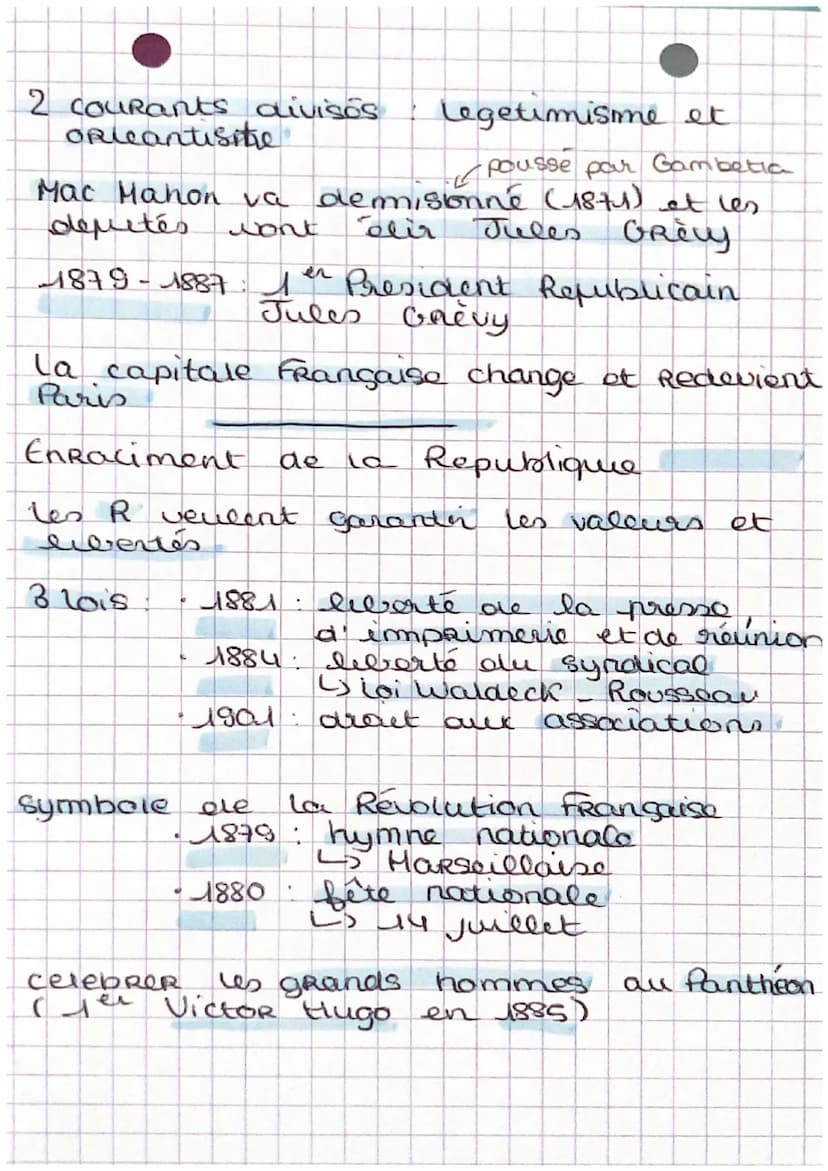 2 courants divisés : Legetimisme et
orleantisme
poussé par Gambetta
Mac Mahon va demisionné (1871) et les
deputés vont élir Jules Grèvy
1879-1887 : 1er President Republicain
Jules Grèvy
La capitale Française change et Redevient
Paris
Enraciment de la Republique
les R veulent garantir les valeurs et
libertés
3 lois : · 1881 : liberté de la presse,
d'imprimerie et de réunion
· 1884 : liberté du syndical
↳ Loi Waldeck-Rousseau
· 1901 : droit aux associations
symbole de la Révolution Française
· 1879 : hymne nationale
↳ Marseillaise
· 1880 : fête nationale
↳ 14 juillet
celebrer les grands hommes au Panthéon
(1er Victor Hugo en 1885)